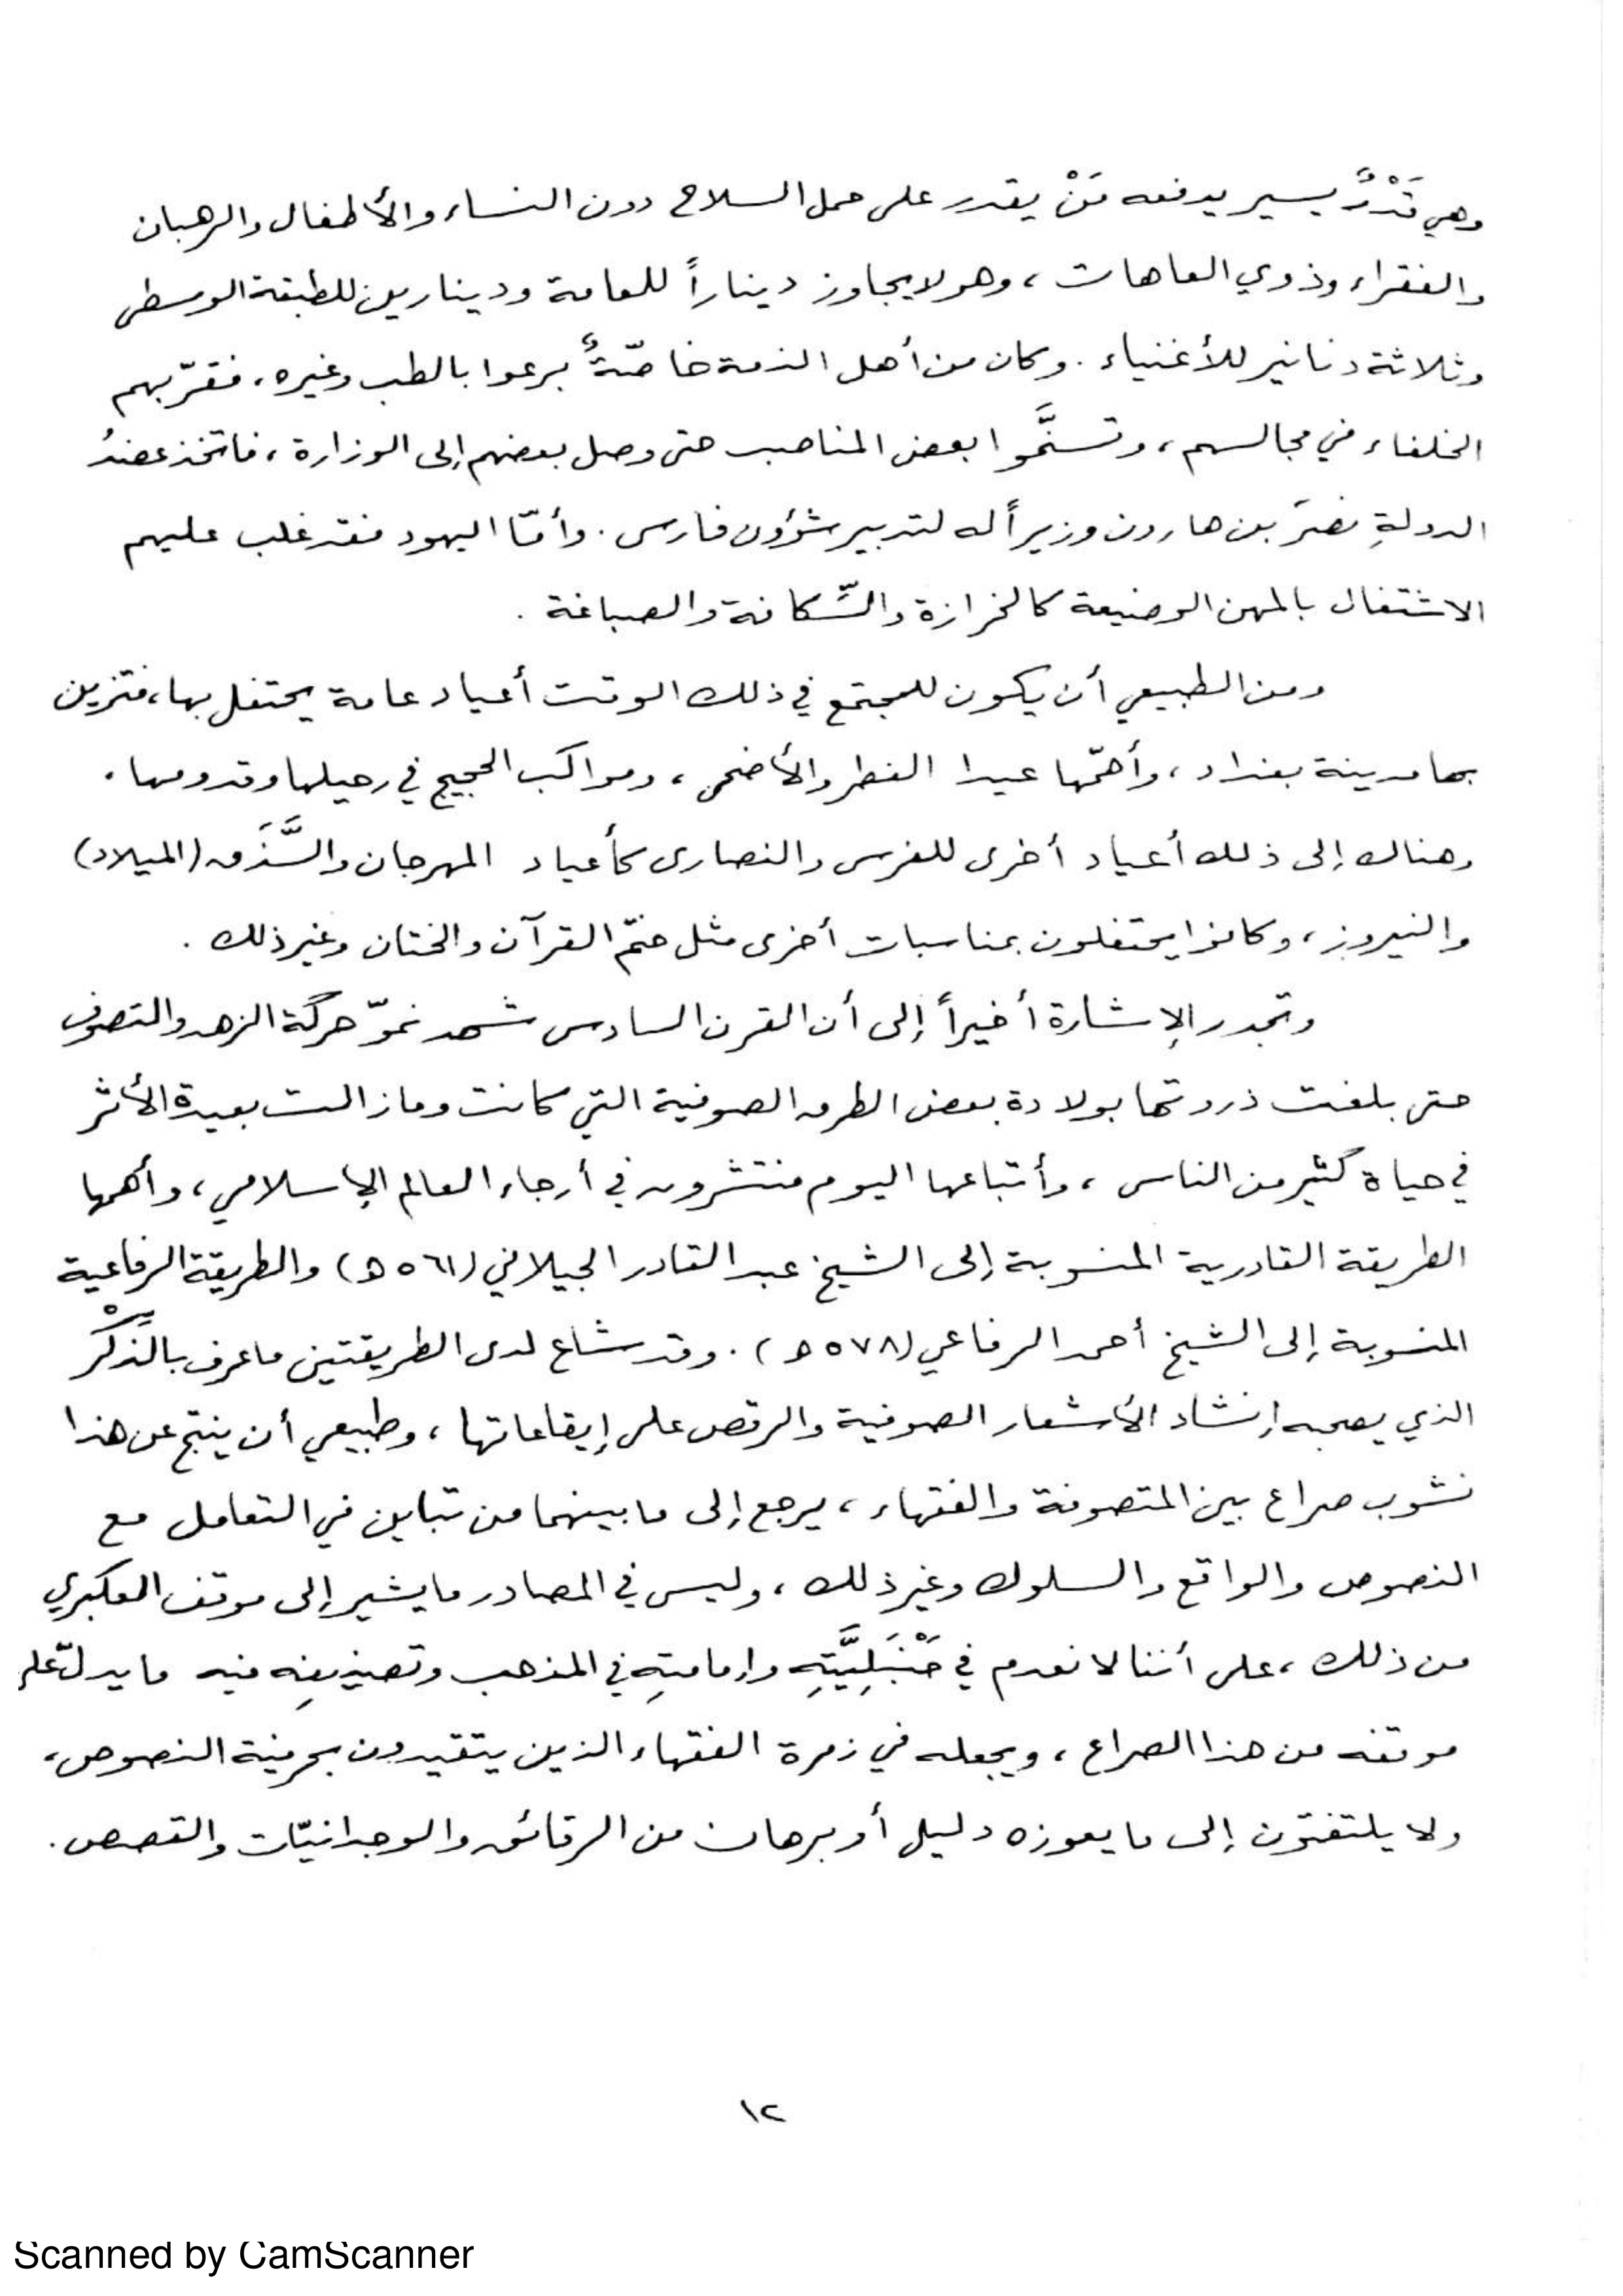 وهي قَدْرٌ يسير يدفعه مَنْ يقدر على حمل السلاح دون النساء والأطفال والرهبان
والفقراء وذوي العاهات، وهو لا يجاوز ديناراً للعامة ودينارين للطبقة الوسطى
وثلاثة دنانير للأغنياء. وكان من أهل الذمة خاصّةٌ برعوا بالطب وغيره، فقرّبهم
الخلفاء في مجالسهم، وتسنَّموا بعض المناصب حتى وصل بعضهم إلى الوزارة، فاتخذ عضدُ
الدولةِ نصرَ بن هارون وزيراً له لتدبير شؤون فارس. وأمّا اليهود فقد غلب عليهم
الاشتغال بالمهن الوضيعة كالخرازة والسِّكانة والصباغة.
ومن الطبيعي أن يكون للمجتمع في ذلك الوقت أعياد عامة يحتفل بها، فتزين
بها مدينة بغداد، وأهمّها عيدا الفطر والأضحى، ومواكب الحجيج في رحيلها وقدومها.
وهناك إلى ذلك أعياد أخرى للفرس والنصارى كأعياد المهرجان والسَّذَق (الميلاد)
والنيروز، وكانوا يحتفلون بمناسبات أخرى مثل ختم القرآن والختان وغير ذلك.
وتجدر الإشارة أخيراً إلى أن القرن السادس شهد نموّ حركة الزهد والتصوف
حتى بلغت ذروتها بولادة بعض الطرق الصوفية التي كانت وما زالت بعيدة الأثر
في حياة كثير من الناس، وأتباعها اليوم منتشرون في أرجاء العالم الإسلامي، وأهمها
الطريقة القادرية المنسوبة إلى الشيخ عبد القادر الجيلاني (٥٦١ هـ) والطريقة الرفاعية
المنسوبة إلى الشيخ أحمد الرفاعي (٥٧٨ هـ). وقد شاع لدى الطريقتين ما عرف بالذِّكْر
الذي يصحبه إنشاد الأشعار الصوفية والرقص على إيقاعاتها، وطبيعي أن ينتج عن هذا
نشوب صراع بين المتصوفة والفقهاء، يرجع إلى ما بينهما من تباين في التعامل مع
النصوص والواقع والسلوك وغير ذلك، وليس في المصادر ما يشير إلى موقف العكبري
من ذلك، على أننا لا نعدم في حَنْبَلِيَّتِهِ وإمامتِهِ في المذهب وتصنيفِه فيه ما يدلّ على
موقفه من هذا الصراع، ويجعله في زمرة الفقهاء الذين يتقيدون بحرفية النصوص،
ولا يلتفتون إلى ما يعوزه دليل أو برهان من الرقائق والوجدانيّات والقصص.
١٢
Scanned by CamScanner